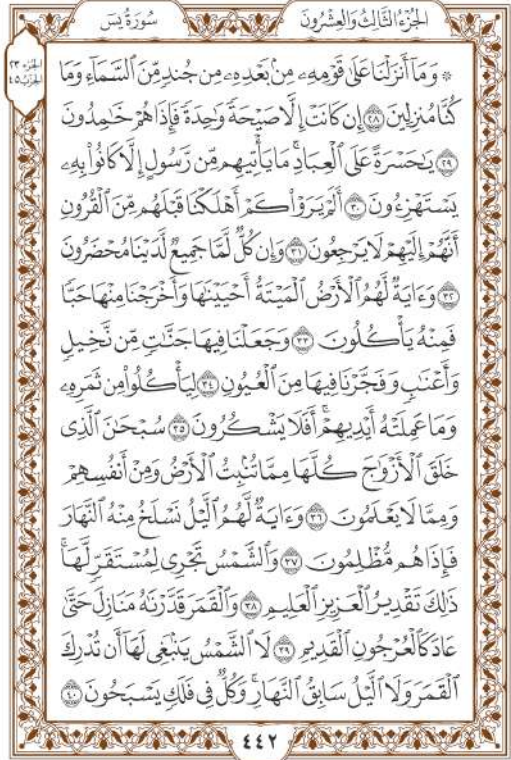 سُورَةُ يسٓ
الجُزْءُ الثَّالِثُ وَالعِشْرُونَ
الجُزْء ٢٣
الحِزْب ٤٥
۞ وَمَآ أَنزَلْنَا عَلَىٰ قَوْمِهِۦ مِنۢ بَعْدِهِۦ مِن جُندٍ مِّنَ ٱلسَّمَآءِ وَمَا
كُنَّا مُنزِلِينَ ٢٨ إِن كَانَتْ إِلَّا صَيْحَةً وَٰحِدَةً فَإِذَا هُمْ خَٰمِدُونَ
٢٩ يَٰحَسْرَةً عَلَى ٱلْعِبَادِۚ مَا يَأْتِيهِم مِّن رَّسُولٍ إِلَّا كَانُوا۟ بِهِۦ
يَسْتَهْزِءُونَ ٣٠ أَلَمْ يَرَوْا۟ كَمْ أَهْلَكْنَا قَبْلَهُم مِّنَ ٱلْقُرُونِ
أَنَّهُمْ إِلَيْهِمْ لَا يَرْجِعُونَ ٣١ وَإِن كُلٌّ لَّمَّا جَمِيعٌ لَّدَيْنَا مُحْضَرُونَ
٣٢ وَءَايَةٌ لَّهُمُ ٱلْأَرْضُ ٱلْمَيْتَةُ أَحْيَيْنَٰهَا وَأَخْرَجْنَا مِنْهَا حَبًّا
فَمِنْهُ يَأْكُلُونَ ٣٣ وَجَعَلْنَا فِيهَا جَنَّٰتٍ مِّن نَّخِيلٍ
وَأَعْنَٰبٍ وَفَجَّرْنَا فِيهَا مِنَ ٱلْعُيُونِ ٣٤ لِيَأْكُلُوا۟ مِن ثَمَرِهِۦ
وَمَا عَمِلَتْهُ أَيْدِيهِمْۚ أَفَلَا يَشْكُرُونَ ٣٥ سُبْحَٰنَ ٱلَّذِى
خَلَقَ ٱلْأَزْوَٰجَ كُلَّهَا مِمَّا تُنۢبِتُ ٱلْأَرْضُ وَمِنْ أَنفُسِهِمْ
وَمِمَّا لَا يَعْلَمُونَ ٣٦ وَءَايَةٌ لَّهُمُ ٱلَّيْلُ نَسْلَخُ مِنْهُ ٱلنَّهَارَ
فَإِذَا هُم مُّظْلِمُونَ ٣٧ وَٱلشَّمْسُ تَجْرِى لِمُسْتَقَرٍّ لَّهَاۚ
ذَٰلِكَ تَقْدِيرُ ٱلْعَزِيزِ ٱلْعَلِيمِ ٣٨ وَٱلْقَمَرَ قَدَّرْنَٰهُ مَنَازِلَ حَتَّىٰ
عَادَ كَٱلْعُرْجُونِ ٱلْقَدِيمِ ٣٩ لَا ٱلشَّمْسُ يَنۢبَغِى لَهَآ أَن تُدْرِكَ
ٱلْقَمَرَ وَلَا ٱلَّيْلُ سَابِقُ ٱلنَّهَارِۚ وَكُلٌّ فِى فَلَكٍ يَسْبَحُونَ ٤٠
٤٤٢